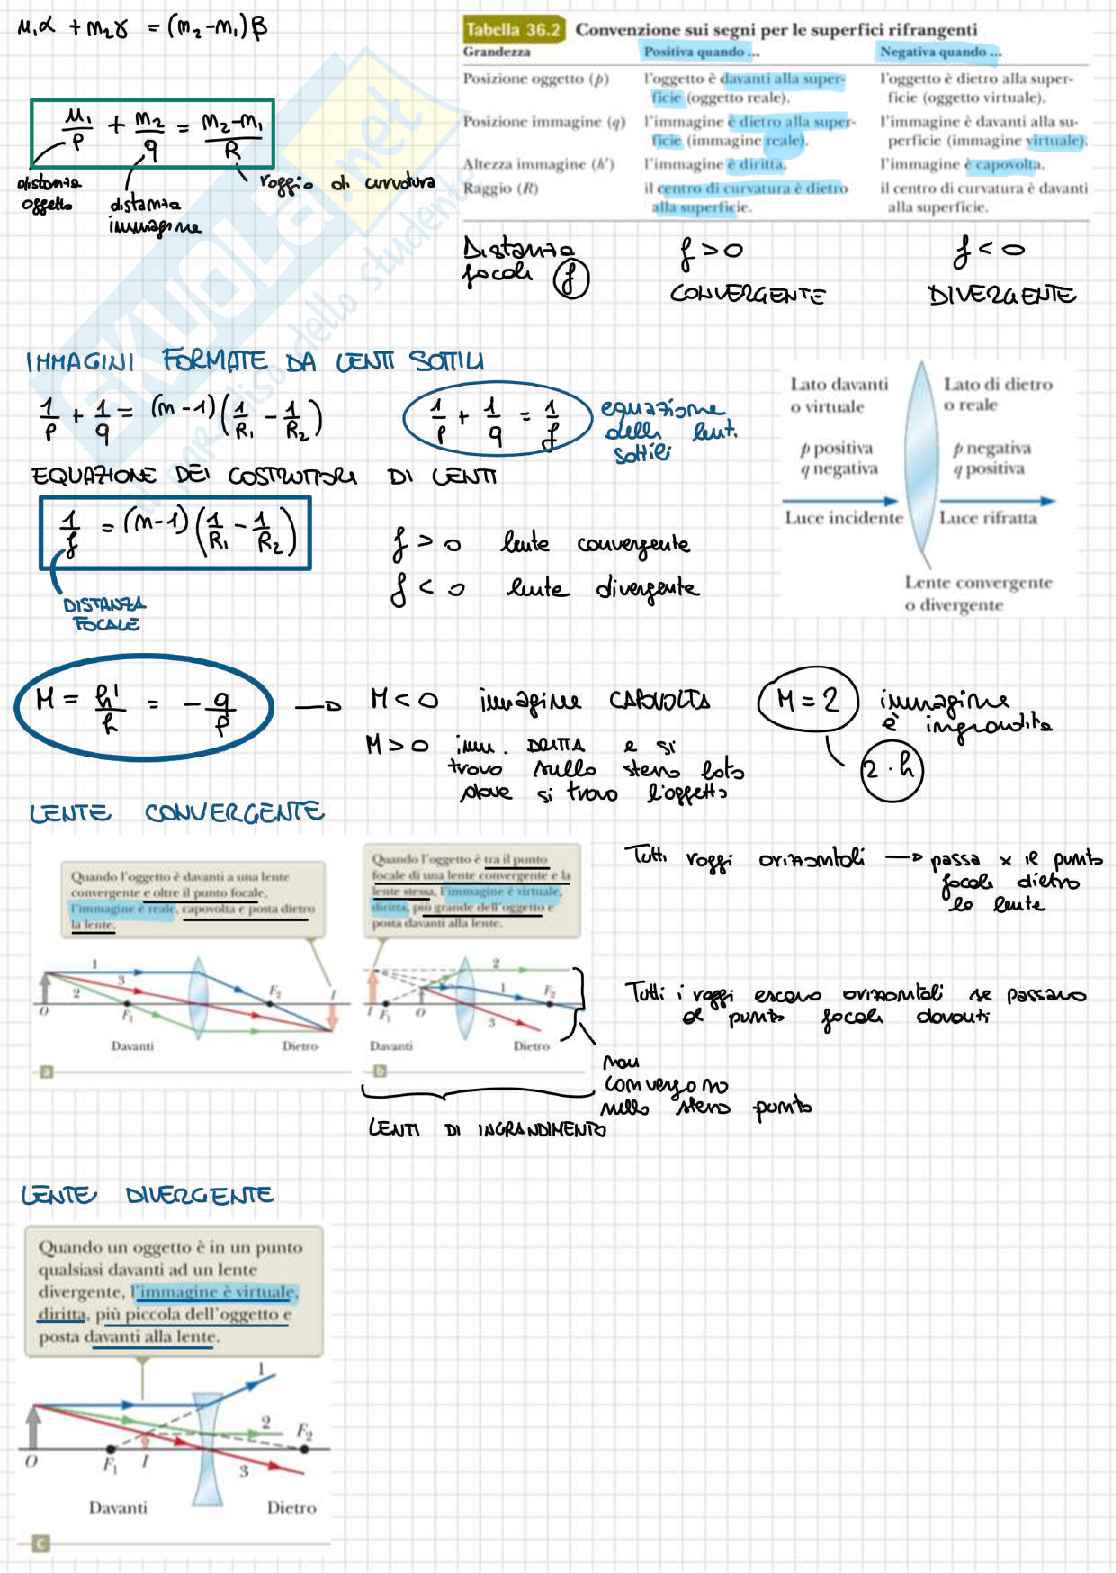 n₁α + n₂γ = (n₂-n₁)β
n₁/p + n₂/q = (n₂-n₁)/R
distanza oggetto
distanza immagine
raggio di curvatura
Tabella 36.2 Convenzione sui segni per le superfici rifrangenti
Grandezza Positiva quando ... Negativa quando ...
Posizione oggetto (p) l'oggetto è davanti alla super- l'oggetto è dietro alla super-
ficie (oggetto reale). ficie (oggetto virtuale).
Posizione immagine (q) l'immagine è dietro alla super- l'immagine è davanti alla su-
ficie (immagine reale). perficie (immagine virtuale).
Altezza immagine (h') l'immagine è diritta. l'immagine è capovolta.
Raggio (R) il centro di curvatura è dietro il centro di curvatura è davanti
alla superficie. alla superficie.
Distanza f > 0 f < 0
focale f CONVERGENTE DIVERGENTE
IMMAGINI FORMATE DA LENTI SOTTILI
1/p + 1/q = (n-1)(1/R₁ - 1/R₂)
1/p + 1/q = 1/f
equazione
delle lenti
sottili
EQUAZIONE DEI COSTRUTTORI DI LENTI
1/f = (n-1)(1/R₁ - 1/R₂)
DISTANZA
FOCALE
f > 0 lente convergente
f < 0 lente divergente
Lato davanti
o virtuale
Lato di dietro
o reale
p positiva
q negativa
p negativa
q positiva
Luce incidente
Luce rifratta
Lente convergente
o divergente
M = h'/h = - q/p
M < 0 immagine CAPOVOLTA
M > 0 imm. DRITTA e si
trova sullo stesso lato
dove si trova l'oggetto
M = 2 immagine
è ingrandita
2 · h
LENTE CONVERGENTE
Quando l'oggetto è davanti a una lente
convergente e oltre il punto focale,
l'immagine è reale, capovolta e posta dietro
la lente.
1
2
3
O
F₁
F₂
I
Davanti
Dietro
a
Quando l'oggetto è tra il punto
focale di una lente convergente e la
lente stessa, l'immagine è virtuale,
diritta, più grande dell'oggetto e
posta davanti alla lente.
2
1
3
I
F₁
O
F₂
Davanti
Dietro
b
LENTI DI INGRANDIMENTO
non
convergono
sullo stesso punto
Tutti raggi orizzontali → passa x il punto
focale dietro
la lente
Tutti i raggi escono orizzontali se passano
al punto focale davanti
LENTE DIVERGENTE
Quando un oggetto è in un punto
qualsiasi davanti ad un lente
divergente, l'immagine è virtuale,
diritta, più piccola dell'oggetto e
posta davanti alla lente.
1
2
3
O
F₁
I
F₂
Davanti
Dietro
c